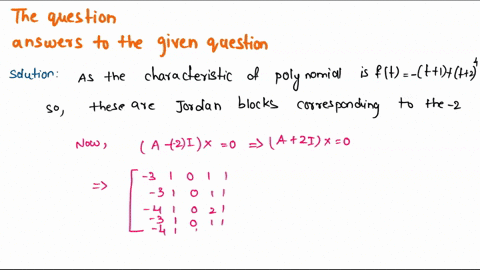 The question
answers to the given question
Solution: As the characteristic of polynomial is f(t) = -(t+1)+(t+2)^4
so, these are Jordan blocks corresponding to the -2
Now, (A-(-2)I)x = 0 => (A+2I)x = 0
=> [ -3 1 0 1 1
-3 1 0 1 1
-4 1 0 2 1
-3 1 0 1 1
-4 1